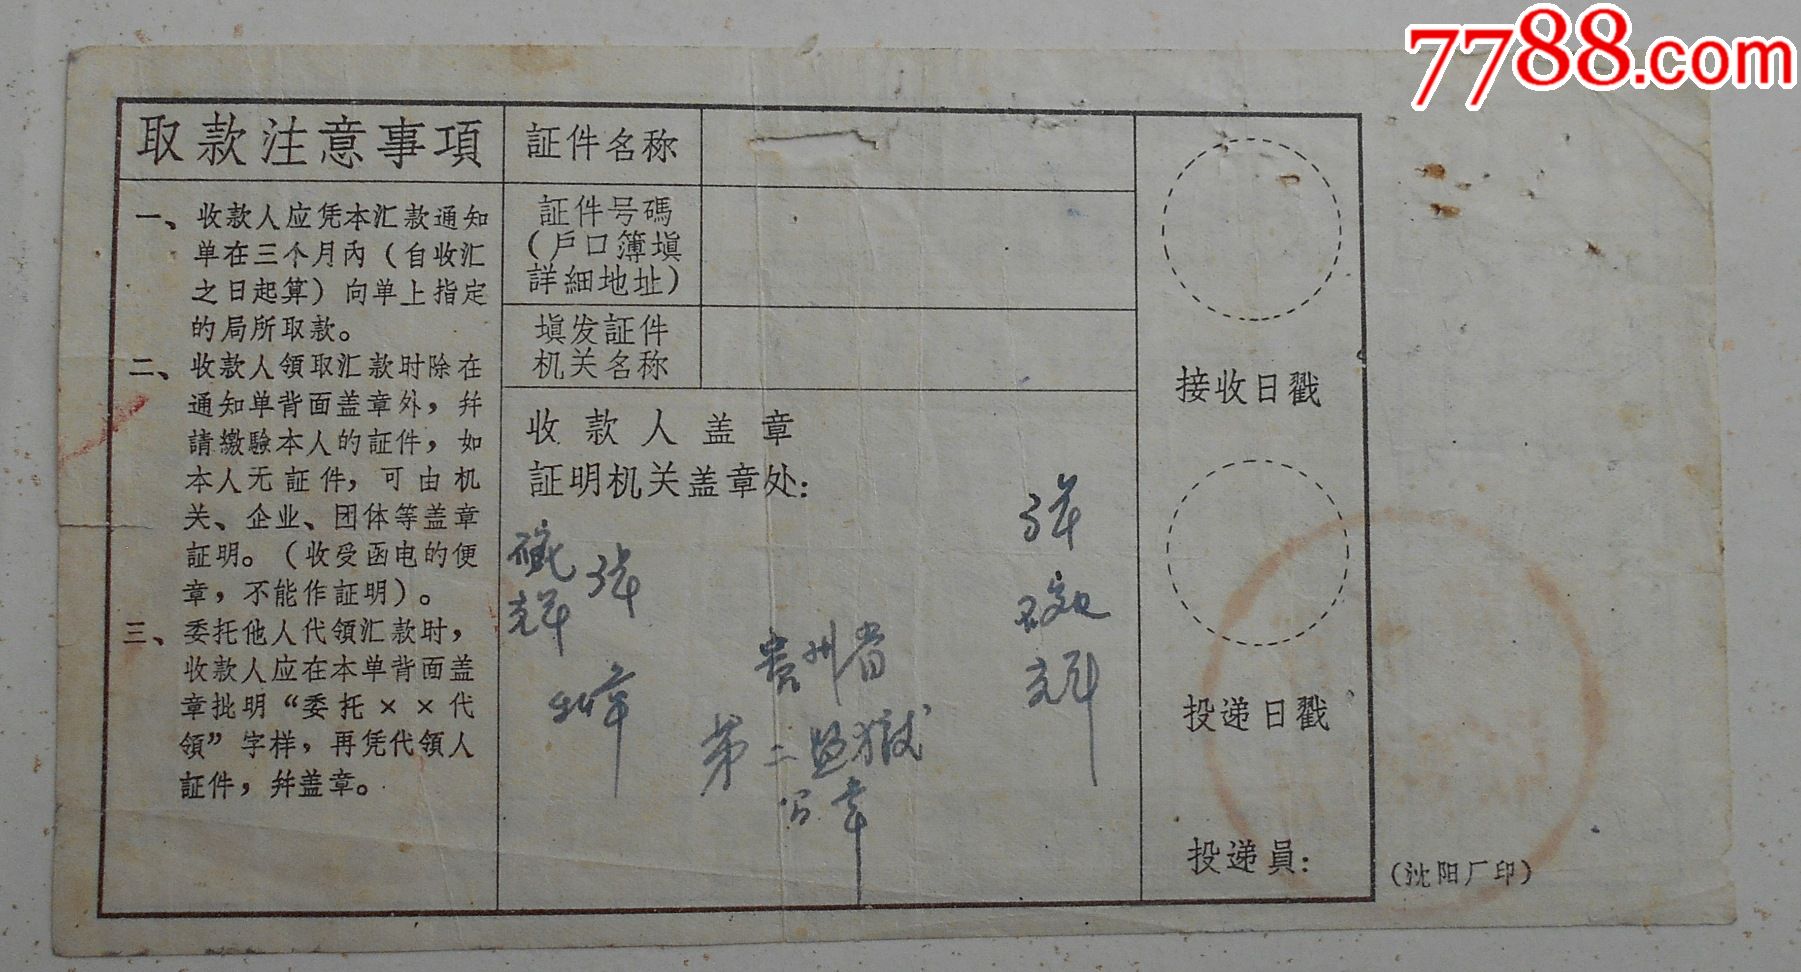 7788.com
取款注意事項
一、收款人应凭本汇款通知
单在三个月內（自收汇
之日起算）向单上指定
的局所取款。
二、收款人領取汇款时除在
通知单背面盖章外，幷
請繳驗本人的証件，如
本人无証件，可由机
关、企业、团体等盖章
証明。（收受函电的便
章，不能作証明）。
三、委托他人代領汇款时，
收款人应在本单背面盖
章批明“委托××代
領”字样，再凭代領人
証件，幷盖章。
証件名称
証件号碼
（戶口簿塡
詳細地址）
塡发証件
机关名称
收款人盖章
証明机关盖章处：
貴州省
第二监獄
公章
接收日戳
投递日戳
投递員：
（沈阳厂印）